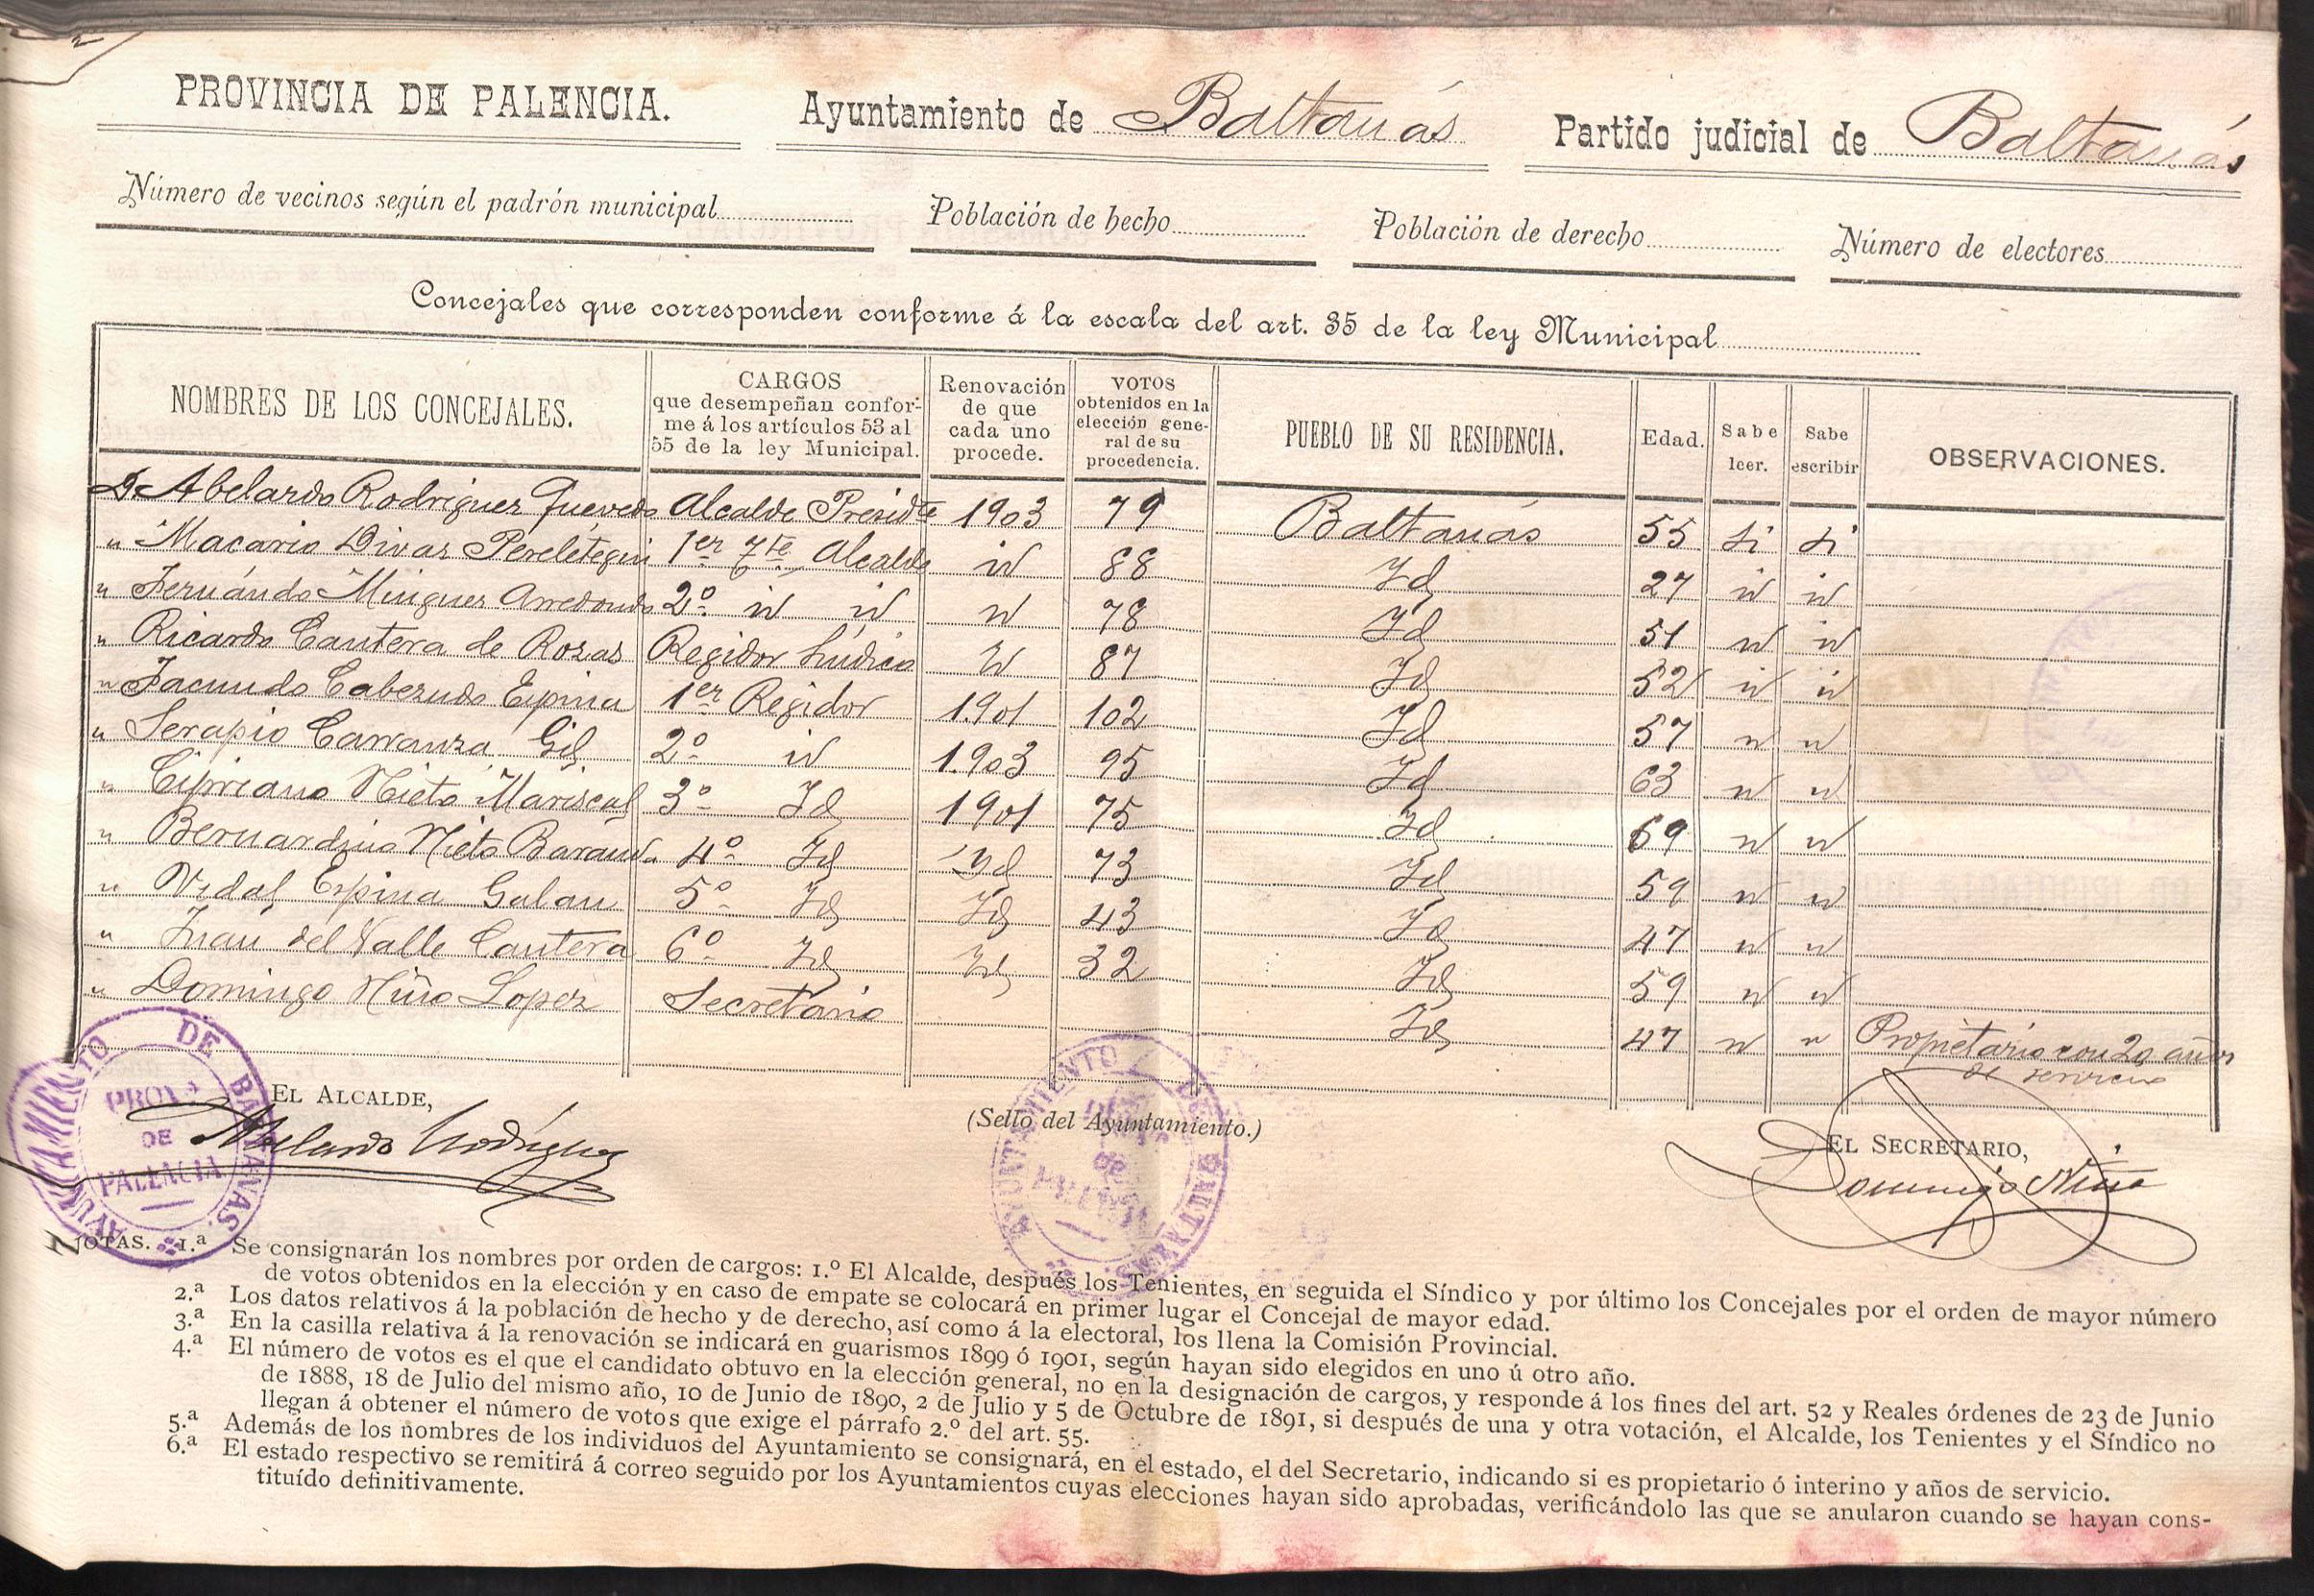 PROVINCIA DE PALENCIA. Ayuntamiento de Baltanás Partido judicial de Baltanás
Número de vecinos según el padrón municipal Población de hecho Población de derecho Número de electores
Concejales que corresponden conforme á la escala del art. 35 de la ley Municipal
NOMBRES DE LOS CONCEJALES. CARGOS que desempeñan confor- me á los artículos 53 al 55 de la ley Municipal. Renovación de que cada uno procede. VOTOS obtenidos en la elección gene- ral de su procedencia. PUEBLO DE SU RESIDENCIA. Edad. Sabe leer. Sabe escribir OBSERVACIONES.
D. Abelardo Rodriguez Quevedo Alcalde Presidte 1903 79 Baltanás 55 si si
" Macario Divar Pereletegui 1er Tte Alcalde id 88 Id 27 id id
" Fernándo Minguez Arredondo 2º id id id 78 Id 51 id id
" Ricardo Cantera de Rozas Regidor Síndico Id 87 Id 52 id id
" Facundo Cabezudo Espina 1er Regidor 1901 102 Id 57 id id
" Serapio Carranza Gil 2º id 1903 95 Id 63 id id
" Cipriano Nieto Mariscal 3º Id 1901 75 Id 69 id id
" Bernardino Nieto 4º Id Id 73 Id 59 id id
" Vidal Espina Galan 5º Id Id 43 Id 47 id id
" Juan del Valle Cantera 6º Id Id 32 Id 59 id id
" Domingo Niño Lopez Secretario Id 47 id id Propietario con 29 años
de servicio
AYUNTAMIENTO DE BALTANAS. PROVª DE PALENCIA
EL ALCALDE,
Abelardo Rodríguez
(Sello del Ayuntamiento.)
AYUNTAMIENTO DE BALTANAS.
EL SECRETARIO,
Domingo Niño
NOTAS. 1.ª Se consignarán los nombres por orden de cargos: 1.º El Alcalde, después los Tenientes, en seguida el Síndico y por último los Concejales por el orden de mayor número
de votos obtenidos en la elección y en caso de empate se colocará en primer lugar el Concejal de mayor edad.
2.ª Los datos relativos á la población de hecho y de derecho, así como á la electoral, los llena la Comisión Provincial.
3.ª En la casilla relativa á la renovación se indicará en guarismos 1899 ó 1901, según hayan sido elegidos en uno ú otro año.
4.ª El número de votos es el que el candidato obtuvo en la elección general, no en la designación de cargos, y responde á los fines del art. 52 y Reales órdenes de 23 de Junio
de 1888, 18 de Julio del mismo año, 10 de Junio de 1890, 2 de Julio y 5 de Octubre de 1891, si después de una y otra votación, el Alcalde, los Tenientes y el Síndico no
llegan á obtener el número de votos que exige el párrafo 2.º del art. 55.
5.ª Además de los nombres de los individuos del Ayuntamiento se consignará, en el estado, el del Secretario, indicando si es propietario ó interino y años de servicio.
6.ª El estado respectivo se remitirá á correo seguido por los Ayuntamientos cuyas elecciones hayan sido aprobadas, verificándolo las que se anularon cuando se hayan cons-
tituído definitivamente.